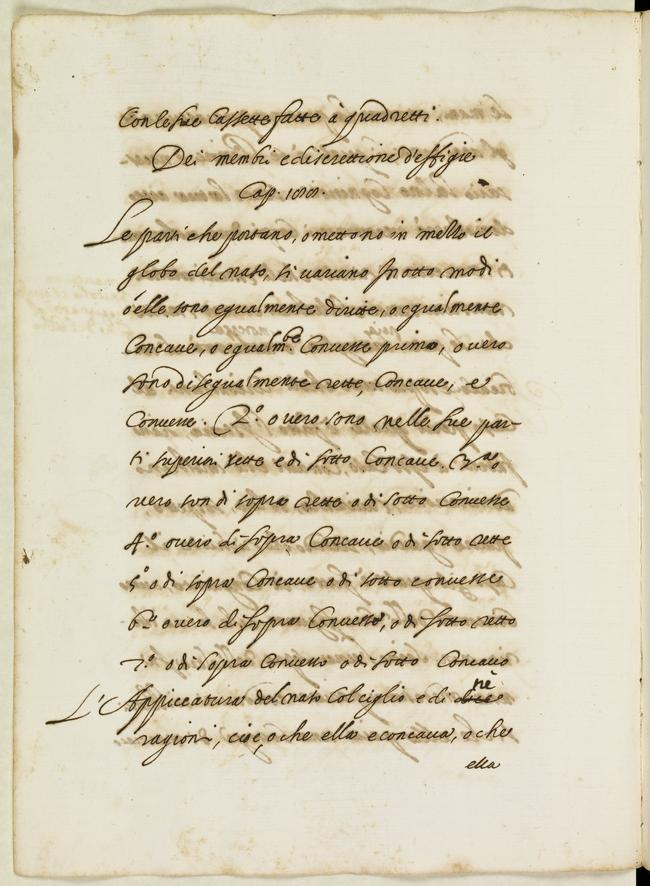 Con le sue Cassette fatte à quadretti.
Dei membri e discrettione d'effigie
Cap. 188.
Le parti che portano, o mettono in mezzo il
globo del naso, si variano In otto modi
o elle sono egualmente diritte, o egualmente
Concave, o egualm.te Convesse primo, overo
sono disegualmente rette, Concave, e
Convesse. 2.º overo sono nelle sue par-
ti superiori rette e di sotto Concave. 3.º o
vero son di sopra rette o di sotto Convesse
4.º overo di sopra Concave o di sotto rette
5.º o di sopra Concave o di sotto convesse
6.º overo di sopra Convesso, o di sotto retto
7.º o di sopra Convesso o di sotto Concavo
L'Appiccatura del naso col ciglio e di
ragioni, cioè, o che ella e concava, o che
ella